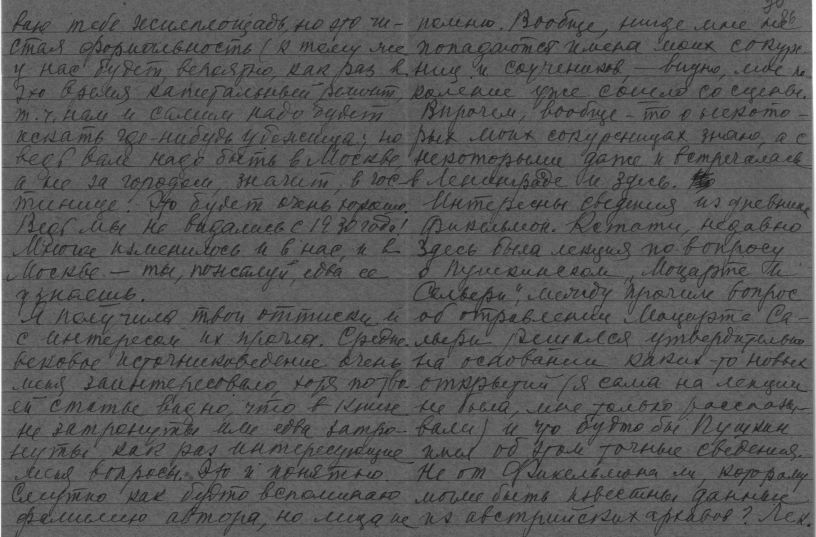 ваю тебе жилплощадь, но это чи-
стая формальность (к тому же
у нас будет, вероятно, как раз в
это время капитальный ремонт,
т.ч. нам и самим надо будет
искать где-нибудь убежища; но
ведь вам надо быть в Москве
а не за городом, значит, в гос-
тинице. Это будет очень хорошо.
Ведь мы не видались с 1930 года!
Многое изменилось и в нас, и в
Москве — ты, пожалуй, едва ее
узнаешь.
Я получила твои оттиски и
с интересом их прочла. Средне-
вековое источниковедение очень
меня заинтересовало хотя по тво-
ей статье видно, что в книге
не затронуты или едва затро-
нуты как раз интересующие
меня вопросы. Это и понятно.
Смутно как будто вспоминаю
фамилию автора, но лица не
помню. Вообще, нигде мне не
попадаются имена моих сокурс-
ниц и соучеников, — видно, мое по-
коление уже сошло со сцены.
Впрочем, вообще-то о некото-
рых моих сокурсницах знаю, а с
некоторыми даже и встречалась
в Ленинграде и здесь.
Интересны сведения из дневника
Фикельмон. Кстати, недавно
здесь была лекция по вопросу
о Пушкинском "Моцарте и
Сальери", между прочим вопрос
об отравлении Моцарта Са-
льери решался утвердительно
на основании каких-то новых
открытий (я сама на лекции
не была, мне только рассказы-
вали) и что будто бы Пушкин
имел об этом точные сведения.
Не от Фикельмона ли, которому
могли быть известны данные
из австрийских архивов? Лек.